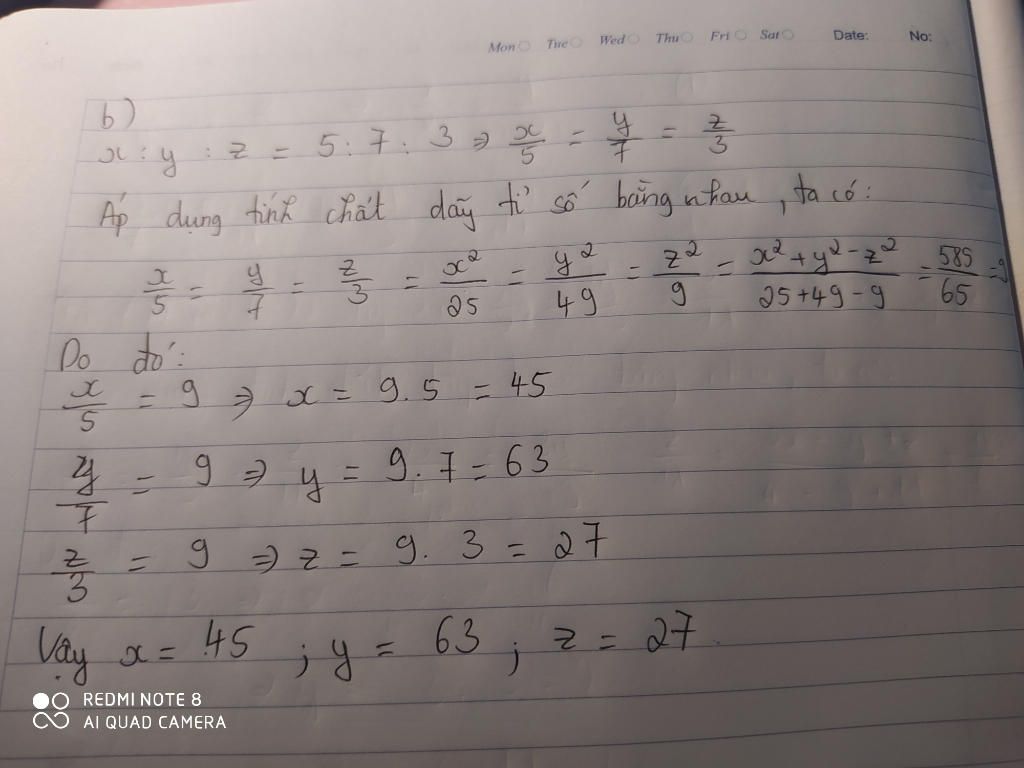 Mon Tue Wed Thu Fri Sat Date: No:
b)
x : y : z = 5 : 7 : 3 => x/5 = y/7 = z/3
Áp dụng tính chất dãy tỉ số bằng nhau, ta có:
x/5 = y/7 = z/3 = x²/25 = y²/49 = z²/9 = x²+y²-z²/25+49-9 = 585/65 = 9
Do đó:
x/5 = 9 => x = 9.5 = 45
y/7 = 9 => y = 9.7 = 63
z/3 = 9 => z = 9.3 = 27
Vậy x = 45 ; y = 63 ; z = 27.
REDMI NOTE 8
AI QUAD CAMERA